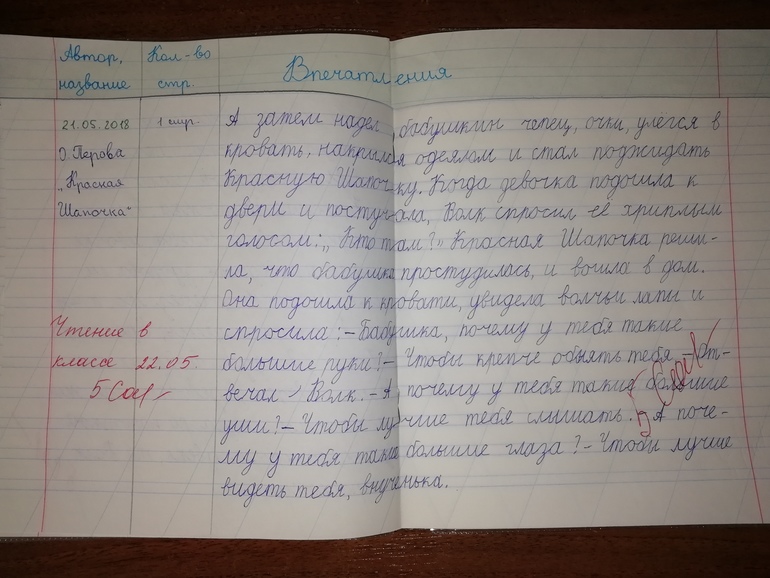 Автор, Кол-во Впечатления
название стр.
21.05.2018 1 стр.
О. Перова
„Красная
Шапочка“
А затем надел бабушкин чепец, очки, улегся в
кровать, накрылся одеялом и стал поджидать
Красную Шапочку. Когда девочка подошла к
двери и постучала, Волк спросил её хриплым
голосом: „Кто там?“ Красная Шапочка реши-
ла, что бабушка простудилась, и вошла в дом.
Она подошла к кровати, увидела волчьи лапы и
спросила: – Бабушка, почему у тебя такие
большие руки? – Чтобы крепче обнять тебя – От-
вечал Волк. – А почему у тебя такие большие
уши? – Чтобы лучше тебя слышать. – А поче-
му у тебя такие большие глаза? – Чтобы лучше
видеть тебя, внученька.
Чтение в
классе 22.05.
5
5